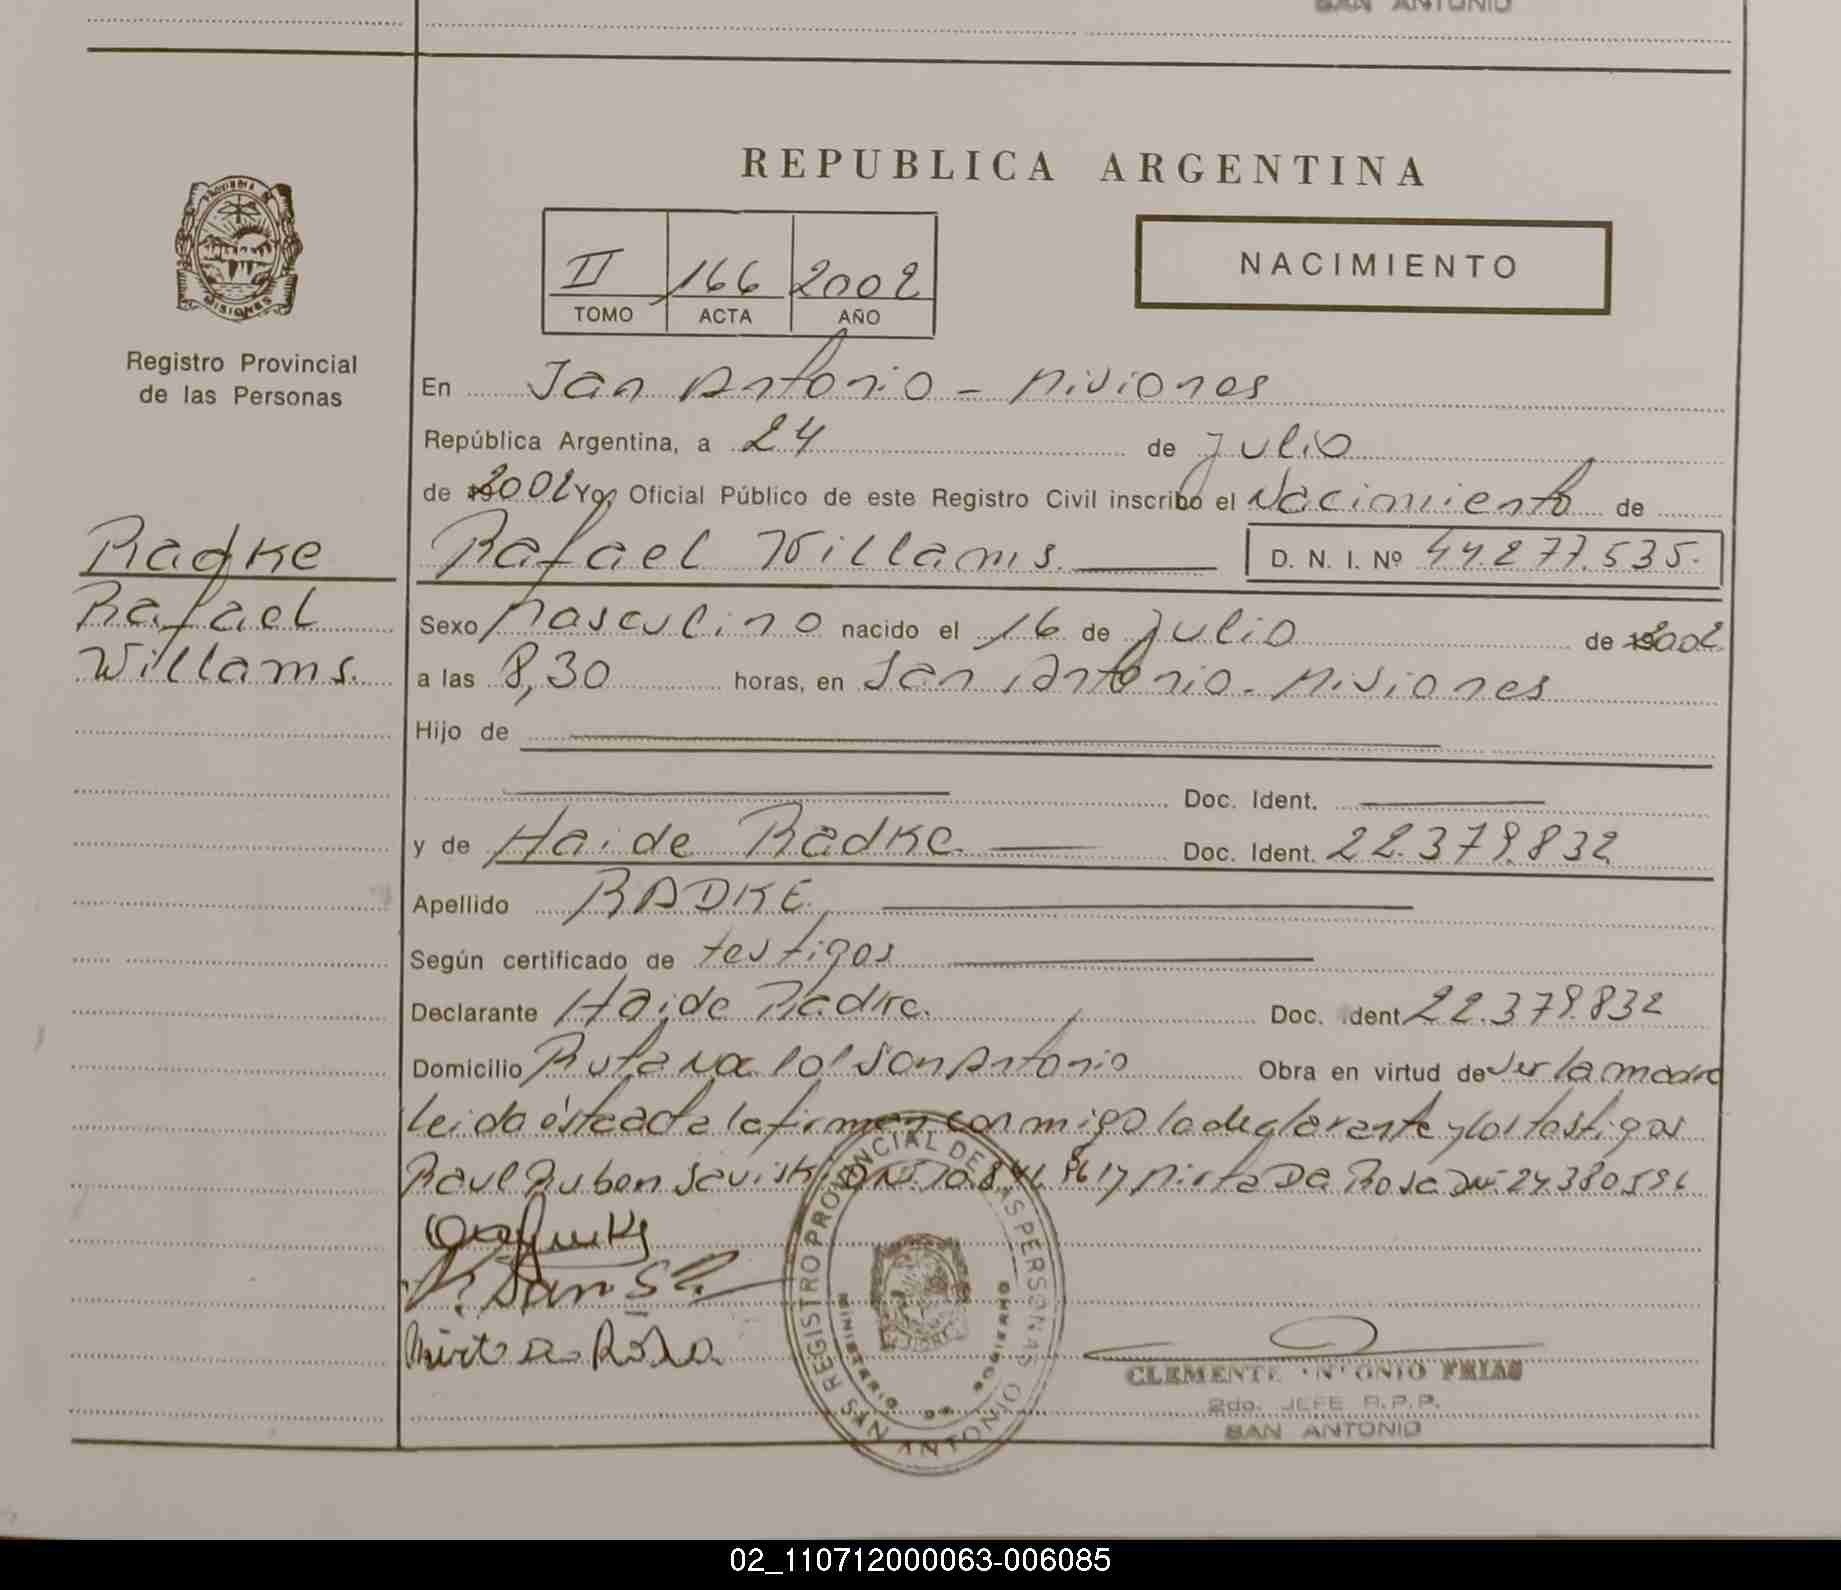 SAN ANTONIO
REPUBLICA ARGENTINA
II 166 2002
TOMO ACTA AÑO
NACIMIENTO
Registro Provincial
de las Personas
En San Antonio - Misiones
República Argentina, a 24 de Julio
de 2002 Yo, Oficial Público de este Registro Civil inscribo el Nacimiento de
Radke
Rafael
Willams.
Rafael Willams. D. N. I. Nº 44.277.535.
Sexo Masculino nacido el 16 de Julio de 2002
a las 8,30 horas, en San Antonio - Misiones
Hijo de
Doc. Ident.
y de Haide Radke Doc. Ident. 22.379.832
Apellido RADKE.
Según certificado de testigos
Declarante Haide Radke. Doc. Ident 22.379.832
Domicilio Ruta Na. 101 San Antonio Obra en virtud de ser la madre
Leida ésta acta la firman conmigo la declarante y los testigos
Raul Ruben DNI Mirta Da Rosa DNI 24.380.596
Mirta Da Rosa
REGISTRO PROVINCIAL DE LAS PERSONAS
MINISTERIO DE GOBIERNO
SAN ANTONIO
CLEMENTE ANTONIO FRIAS
2do. JEFE R.P.P.
SAN ANTONIO
02_110712000063-006085